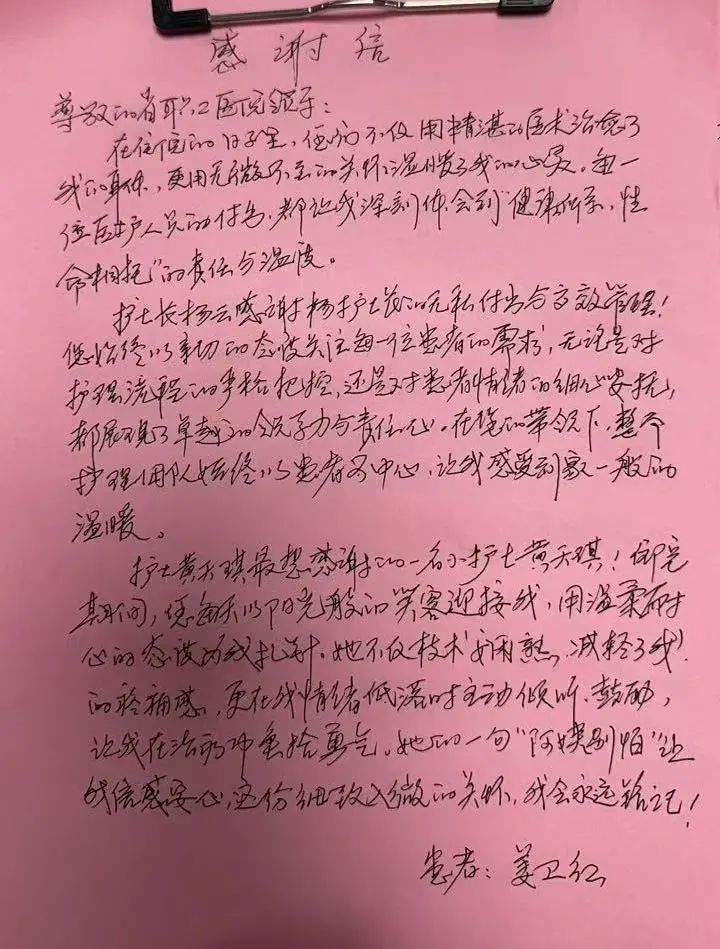 感谢信
尊敬的省职工医院领导：
在住院的日子里，你们不仅用精湛的医术治愈了
我的身体，更用无微不至的关怀温暖了我的心灵。每一
位医护人员的付出，都让我深刻体会到“健康所系，性
命相托”的责任与温度。
护士长杨云感谢杨护士长的无私付出与高效管理！
您始终以亲切的态度关注每一位患者的需求，无论是对
护理流程的严格把控，还是对患者情绪的细心安抚，
都展现了卓越的领导力与责任心。在您的带领下，整个
护理团队始终以患者为中心，让我感受到家一般的
温暖。
护士黄天琪最想感谢的一名小护士黄天琪！住院
期间，您每天以阳光般的笑容迎接我，用温柔耐
心的态度为我扎针。她不仅技术娴熟，减轻了我
的疼痛感，更在我情绪低落时主动倾听、鼓励，
让我在治疗中重拾勇气。她的一句“阿姨别怕”让
我倍感安心，这份细致入微的关怀，我会永远铭记！
患者：姜卫红